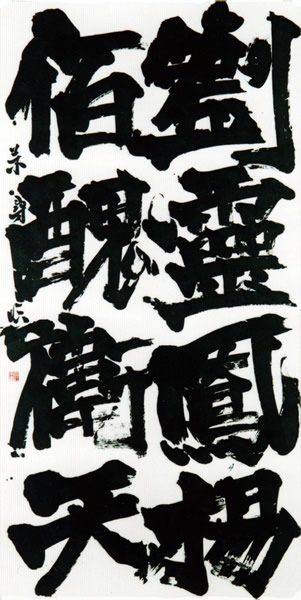 劉靈鳳揚
佰醜衛天